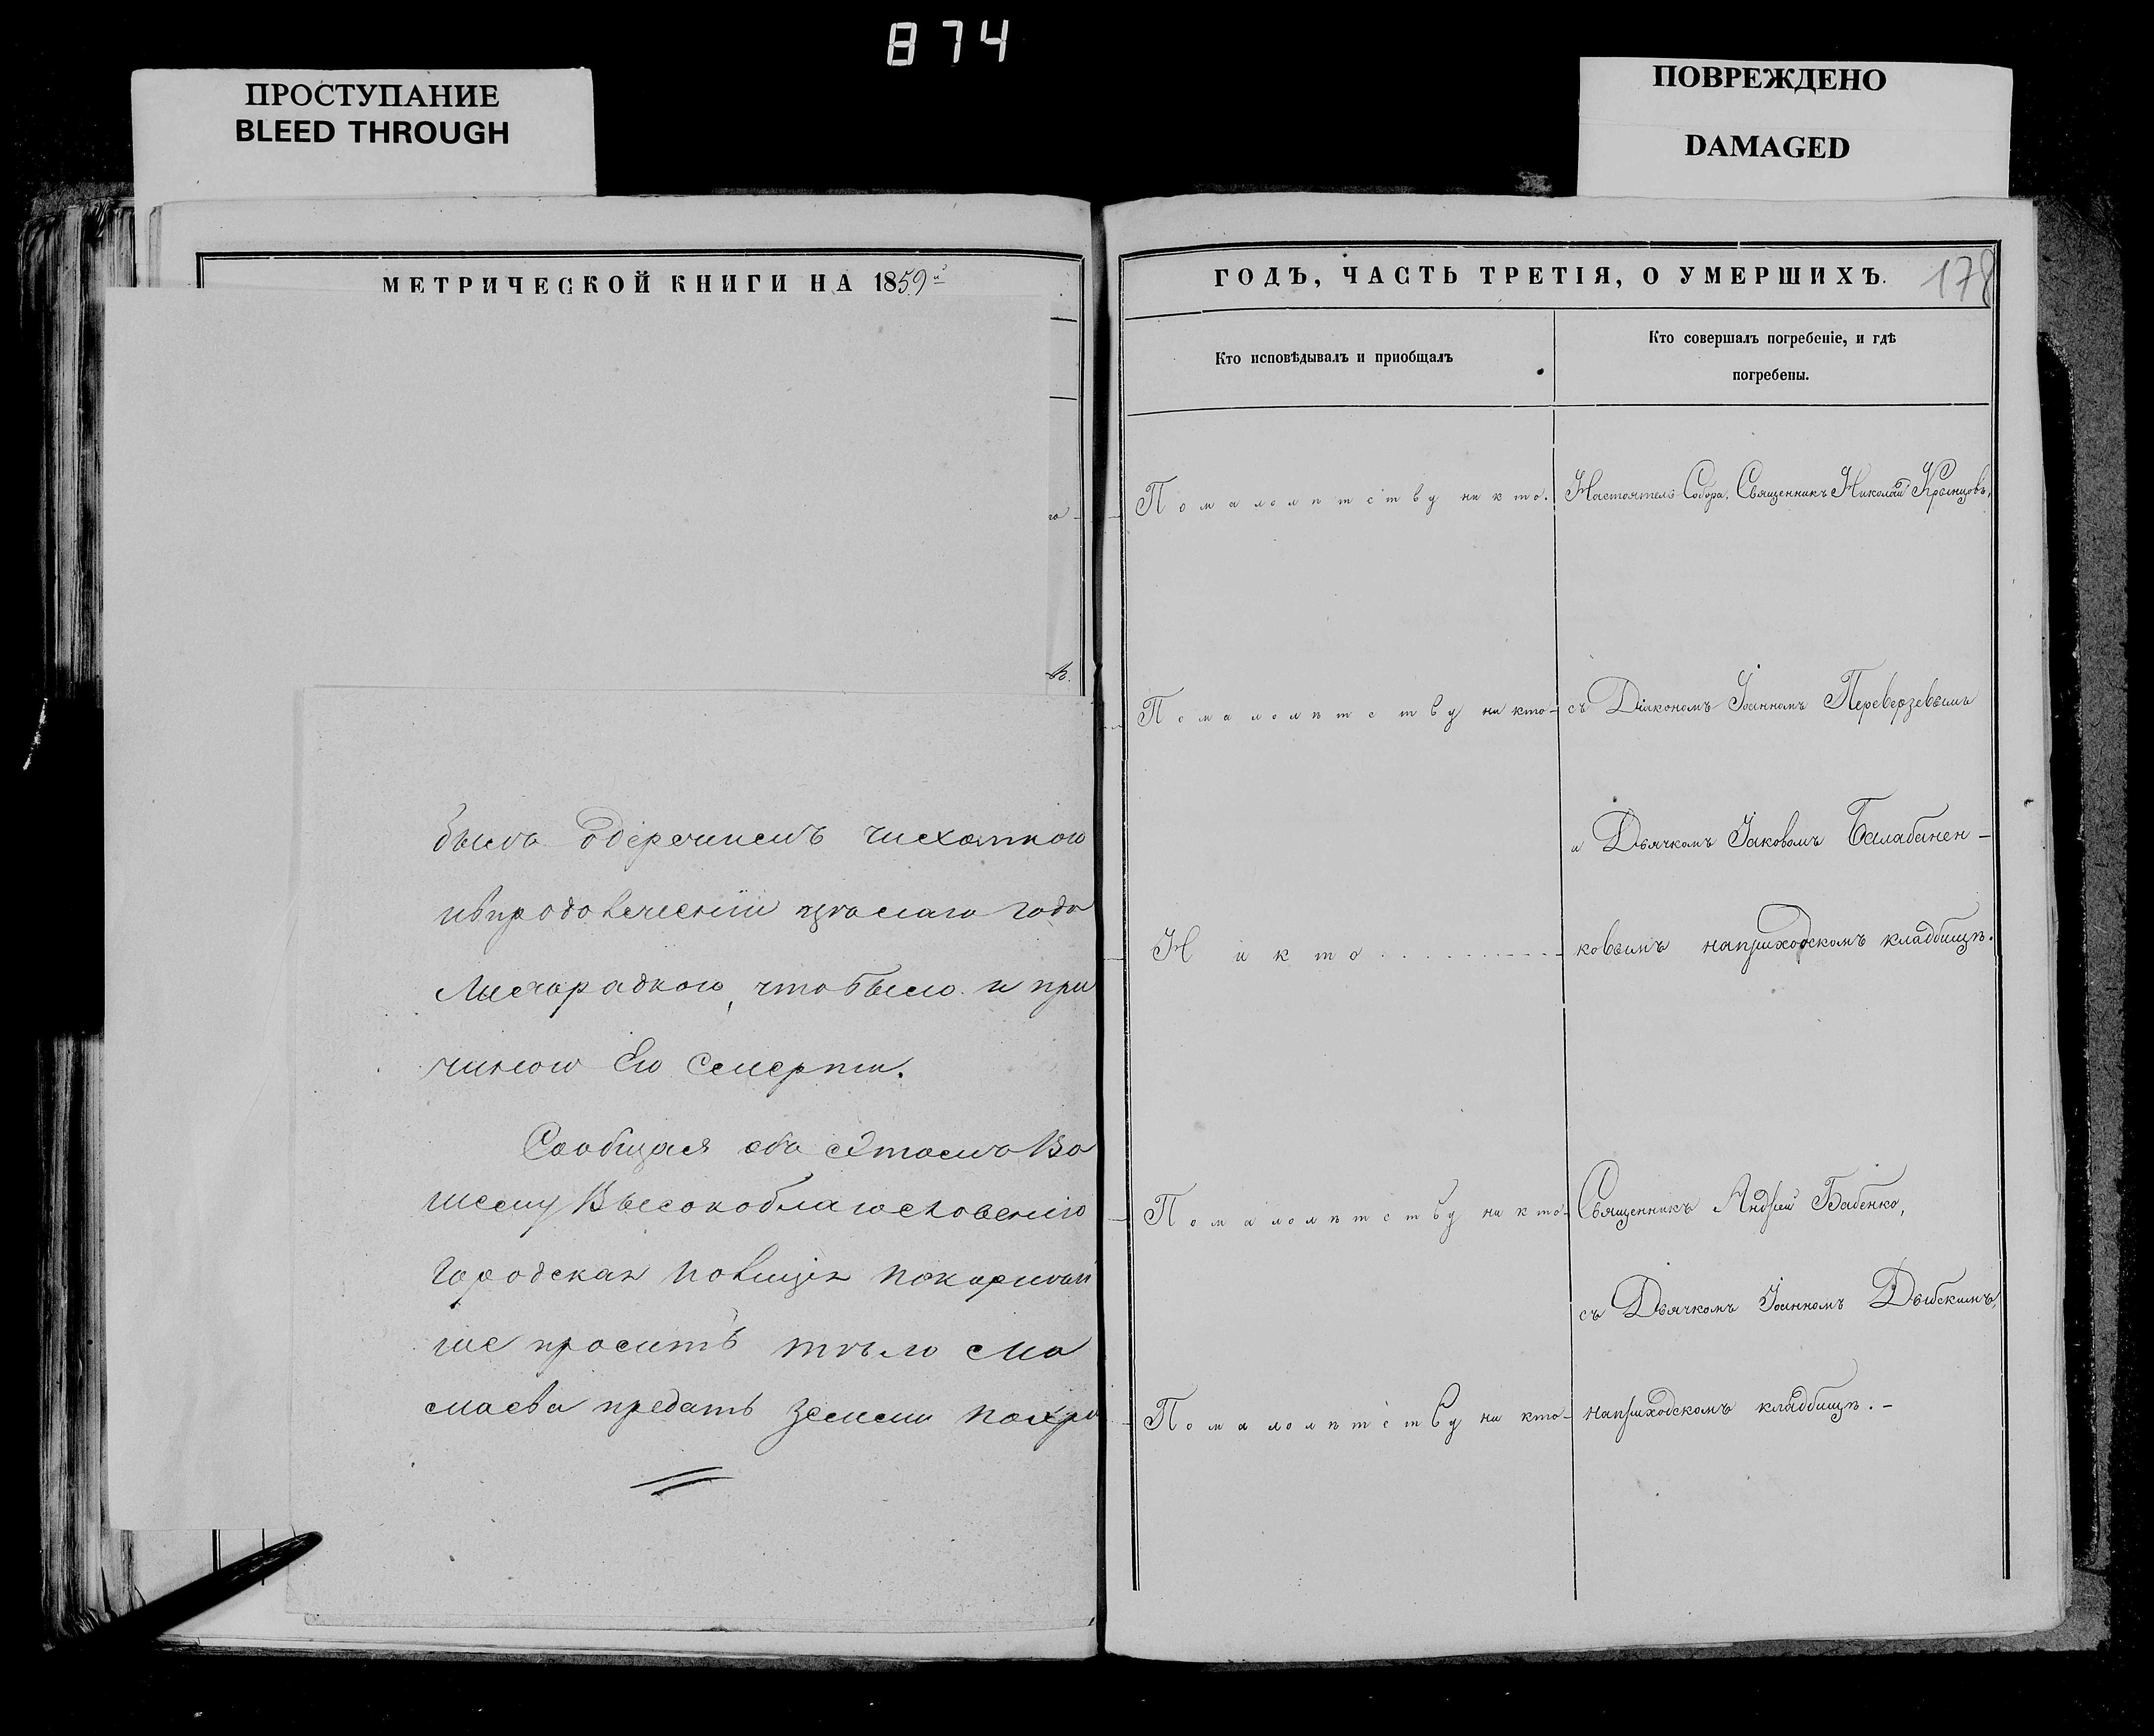 874
ПРОСТУПАНИЕ
BLEED THROUGH
ПОВРЕЖДЕНО
DAMAGED
МЕТРИЧЕСКОЙ КНИГИ НА 1859й
го
былъ одержимъ чихоткою
ивпродолженіи цѣлаго года
Лихорадкою, что было и при
чиною Его Смерти.
Сообщая объ этомъ Ва
шему Высокоблагословенію
Городская Полиція покорнѣй
ше проситъ тѣло
предать земли
ГОДЪ, ЧАСТЬ ТРЕТІЯ, О УМЕРШИХЪ.
178
Кто исповѣдывалъ и приобщалъ
Кто совершалъ погребеніе, и гдѣ
погребены.
Помалолѣтству никто. Настоятель Собора, Священникъ Николай
Помалолѣтству никто- съ Діакономъ Іоанномъ Переверзевымъ
и Дьячкомъ Іаковомъ Балабанен-
Никто ковымъ наприходскомъ кладбищѣ.
Помалолѣтству никто- Священникъ Андрей Бабенко,
съ Дьячкомъ Іоанномъ
Помалолѣтству никто- наприходскомъ кладбищѣ.-